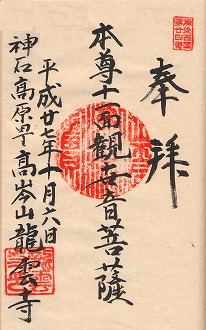 奉拝
本尊十一面観世音菩薩
平成廿七年十月六日
神石高原町高岑山龍雲寺